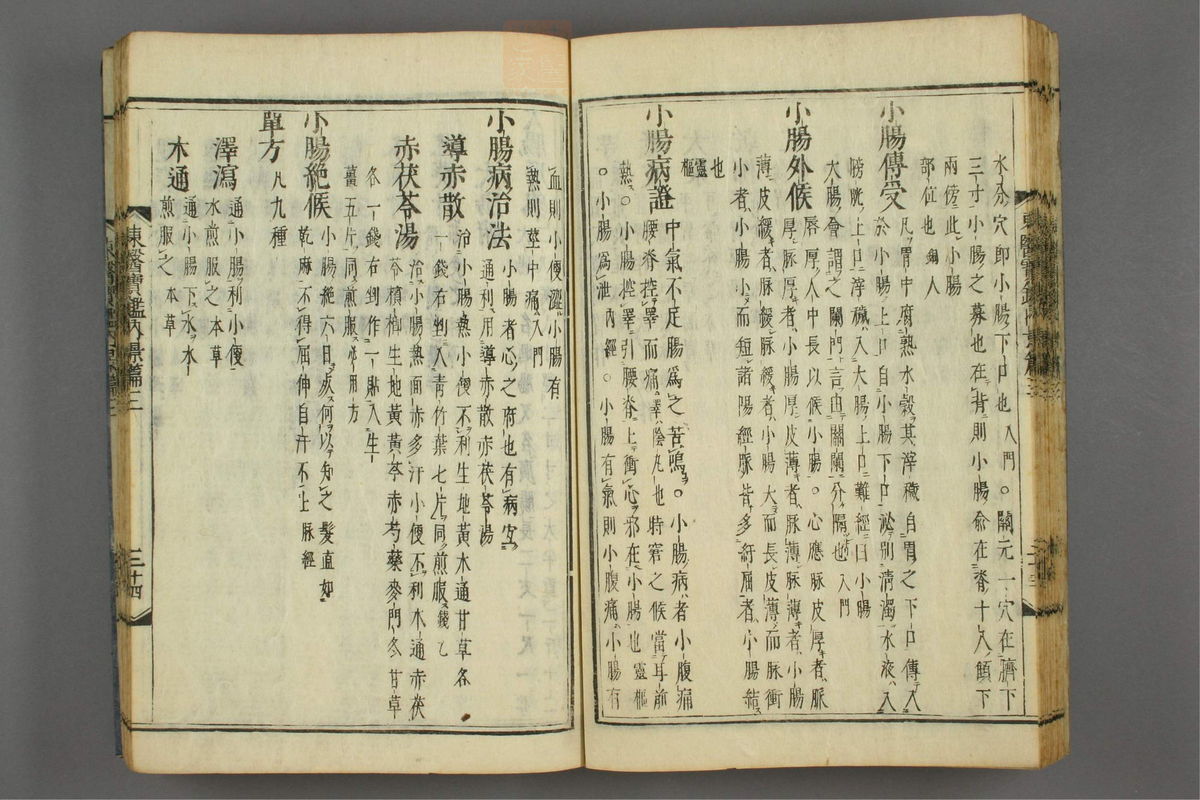 水分穴卽小腸下口也入門○關元一穴在臍下
三寸小腸之募也在背則小腸兪在脊十八顀下
兩傍此小腸
部位也銅人
小腸傳受凡胃中腐熟水穀其滓穢自胃之下口傳入
於小腸上口自小腸下口泌別淸濁水液入
膀胱上口滓穢入大腸上口難經曰小腸
大腸會謂之闌門言由關闌分隔也入門
小腸外候唇厚人中長以候小腸○心應脉皮厚者脈
厚脉厚者小腸厚皮薄者脉薄脉薄者小腸
薄皮緩者脉緩脉緩者小腸大而長皮薄而脉衝
小者小腸小而短諸陽經脈皆多紆屈者小腸結
也
靈樞
小腸病證中氣不足腸爲之苦鳴○小腸病者小腹痛
腰脊控睾而痛睾陰丸也時窘之候當耳前
熱○小腸控睾引腰脊上衝心邪在小腸也靈樞
○小腸爲泄內經○小腸有氣則小腹痛小腸有
血則小便澁小腸有
熱則莖中痛入門
小腸病治法小腸者心之府也有病宜
通利用導赤散赤茯苓湯
導赤散治小腸熱小便不利生地黃木通甘草各
一錢右剉入靑竹葉七片同煎服錢乙
赤茯苓湯治小腸熱面赤多汗小便不利木通赤茯
苓檳榔生地黃黃芩赤芍藥麥門冬甘草
各一錢右剉作一貼入生
薑五片同煎服必用方
小腸絶候小腸絶六日死何以知之髮直如
乾麻不得屈伸自汗不止脉經
單方凡九種
澤瀉通小腸利小便
水煎服之本草
木通通小腸下水水
煎服之本草
東醫寶鑑內景篇三
三十四